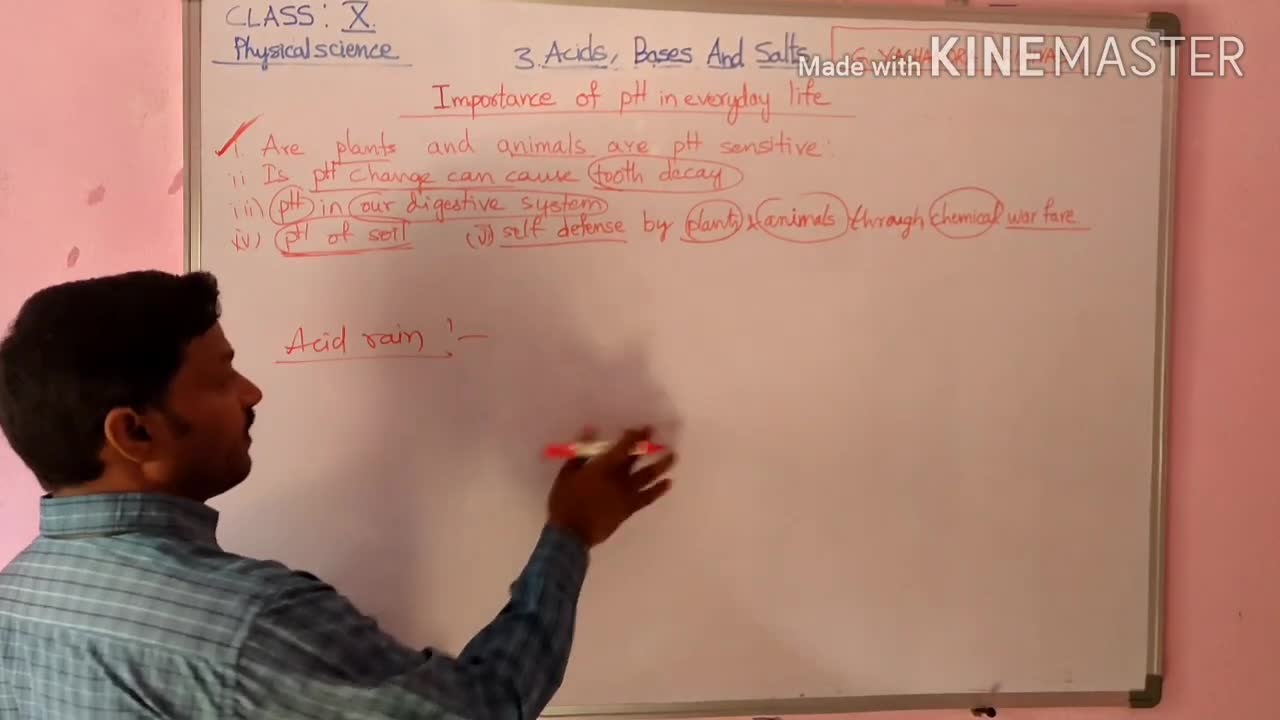 CLASS: X.
Physical science
3. Acids, Bases And Salts
Made with KINEMASTER
Importance of pH in everyday life
i. Are plants and animals are pH sensitive:
ii Is pH change can cause tooth decay
iii) pH in our digestive system
iv) pH of soil (v) self defense by plants & animals through chemical war fare
Acid rain :-